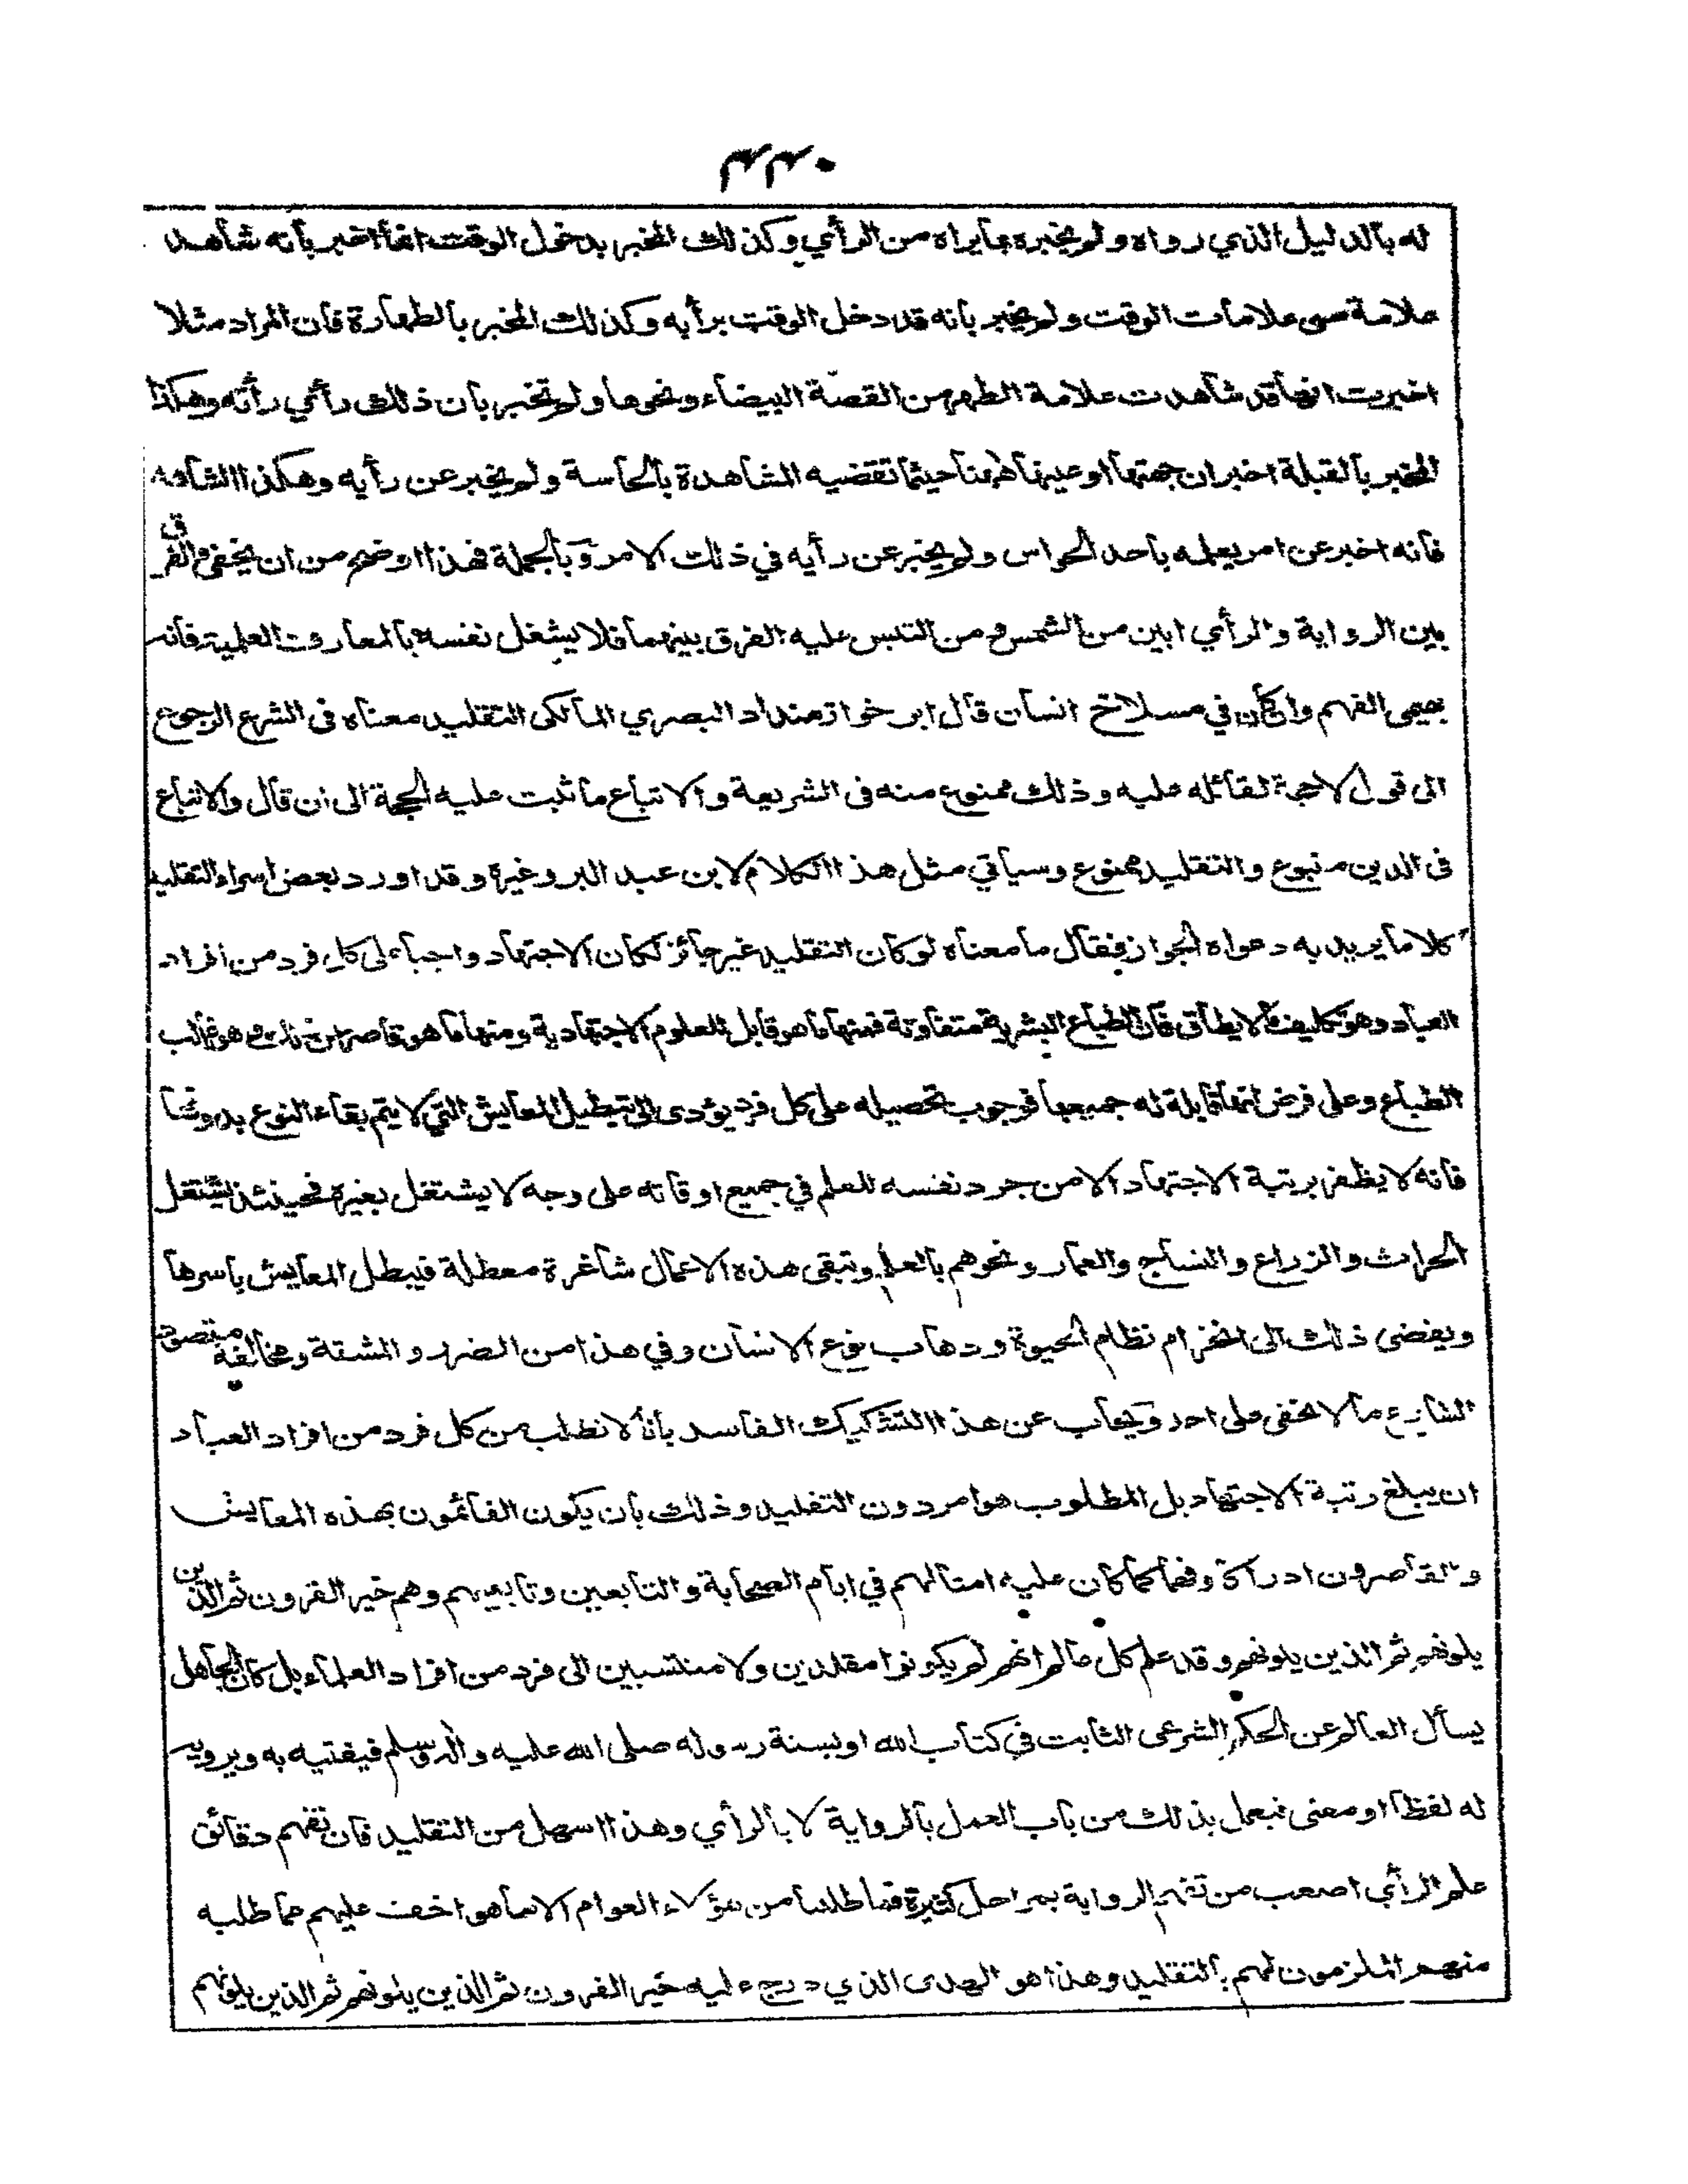 ٤٣٠
له بالدليل الذي رواه ولم يخبره بما يراه من الرأي وكذلك المخبر بدخول الوقت انما اخبر بأنه شاهد
علامة من علامات الوقت ولم يخبر بانه قد دخل الوقت برأيه وكذلك المخبر بالطهارة فان المراد مثلا
اخبرت انها قد شاهدت علامة الطهر من القصّة البيضاء ونحوها ولم تخبر بان ذلك رأي رأته وهكذا
المخبر بالقبلة اخبر ان جهتها او عينها ههنا حيثما تقتضيه المشاهدة بالحاسة ولم يخبر عن رأيه وهكذا الشاهد
فانه اخبر عن امر يعلمه باحد الحواس ولم يخبر عن رأيه في ذلك الامر وبالجملة فهذا اوضح من ان يخفى والفرق
بين الرواية والرأي ابين من الشمس ومن التبس عليه الفرق بينهما فلا يشغل نفسه بالمعارف العلمية فانه
بهيمي الفهم وان كان في مسلاخ انسان قال ابن خواز منداد البصري المالكي التقليد معناه في الشرع الرجوع
الى قول لا حجة لقائله عليه وذلك ممنوع منه في الشريعة والاتباع ما ثبت عليه الحجة الى ان قال والاتباع
في الدين متبوع والتقليد ممنوع وسيأتي مثل هذا الكلام لابن عبد البر وغيره وقد اورد بعض اسراء التقليد
كلاما يريد به دعواه الجواز فقال ما معناه لو كان التقليد غير جائز لكان الاجتهاد واجبا على كل فرد من افراد
العباد وهو تكليف ما لا يطاق فان الطباع البشرية متفاوتة فمنها ما هو قابل للعلوم الاجتهادية ومنها ما هو قاصر عن ذلك وهو غالب
الطباع وعلى فرض انها قابلة له جميعها فوجوب تحصيله على كل فرد يؤدى الى تبطيل المعايش التي لا يتم بقاء النوع بدونها
فانه لا يظفر برتبة الاجتهاد الا من جرد نفسه للعلم في جميع اوقاته على وجه لا يشتغل بغيره فحينئذ يشتغل
الحراث والزراع والنساج والعمار ونحوهم بالعلم وتبقى هذه الاعمال شاغرة معطلة فيبطل المعايش بأسرها
ويفضى ذلك الى انخرام نظام الحيوة وذهاب نوع الانسان وفي هذا من الضرر والمشقة ومخالفة مقصود
الشارع ما لا يخفى على احد ويجاب عن هذا التشكيك الفاسد بأنا لا نطلب من كل فرد من افراد العباد
ان يبلغ رتبة الاجتهاد بل المطلوب هو امر دون التقليد وذلك بان يكون القائمون بهذه المعايش
والقاصرون ادراكا وفهما كما كان عليه امثالهم في ايام الصحابة والتابعين وتابعيهم وهم خير القرون ثم الذين
يلونهم ثم الذين يلونهم وقد علم كل عالم انهم لم يكونوا مقلدين ولا منتسبين الى فرد من افراد العلماء بل كان الجاهل
يسأل العالم عن الحكم الشرعى الثابت في كتاب الله او بسنة رسوله صلى الله عليه واله وسلم فيفتيه به ويرويه
له لفظا او معنى فيعمل بذلك من باب العمل بالرواية لا بالرأي وهذا اسهل من التقليد فان تفهم دقائق
علم الرأي اصعب من تفهم الرواية بمراحل كثيرة فما طلبنا من هؤلاء العوام الا ما هو اخف عليهم مما طلبه
منهم الملزمون لهم بالتقليد وهذا هو الهدى الذي درج عليه خير القرون ثم الذين يلونهم ثم الذين يلونهم